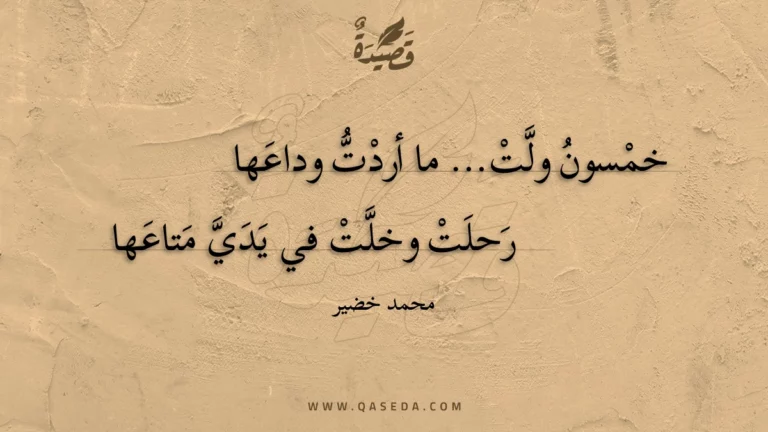 قَصِيْدَةٌ
خمْسونُ ولَّتْ... ما أردْتُّ وداعَها
رَحلَتْ وخلَّتْ في يَدَيَّ مَتاعَها
محمد خضير
WWW.QASEDA.COM